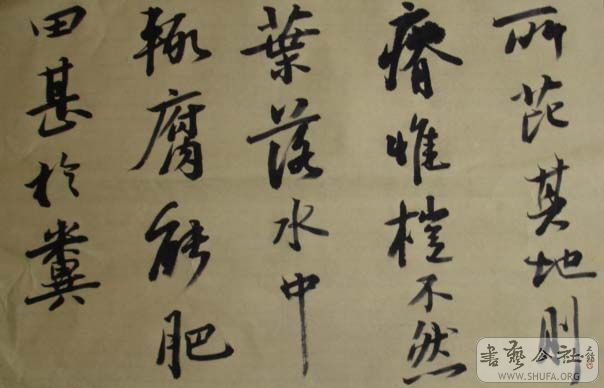 所芘其地則
瘠惟榿不然
葉落水中
輙腐能肥
田甚於糞
書藝公社
WWW.SHUFA.ORG